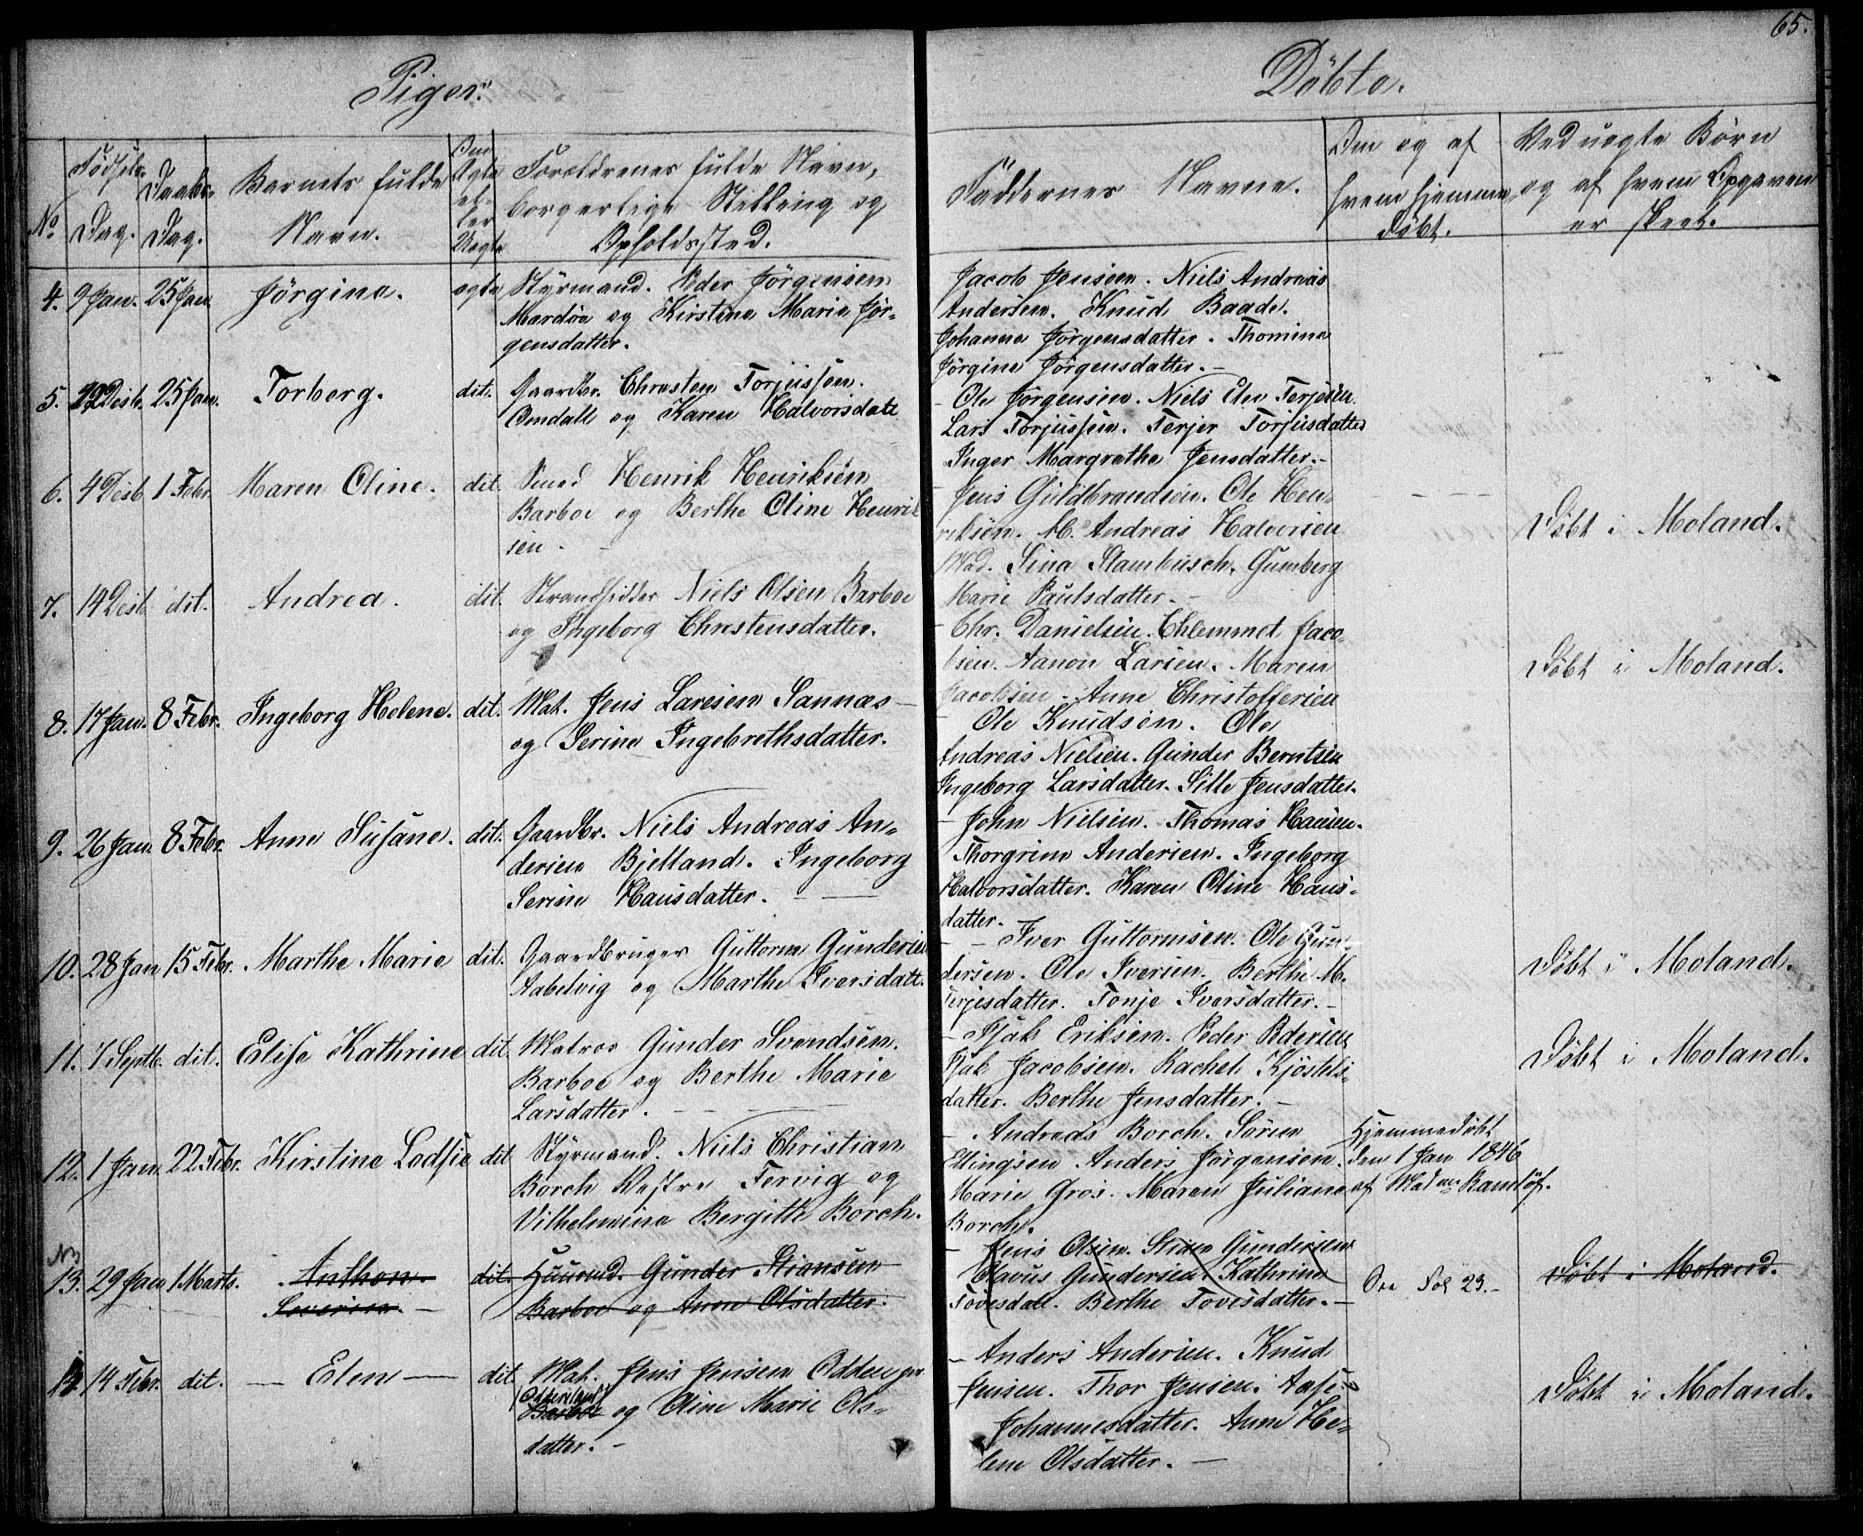 65.
Piger.
Døbte.
No
Fødsels-
Dag.
Daabs-
Dag.
Barnets fulde
Navn.
Om
Ægte
el-
ler
Uægte
Forældrenes fulde Navn,
borgerlige Stilling og
Opholdssted.
Faddernes Navne.
Om og af
hvem hjemme
døbt.
Ved uægte Børn
og af hvem Opgaven
er skeet.
4. 9 Jan. 25 Jan. Jörgine. ægte Styrmand. Peder Jörgensen
Mardöe og Kirstine Marie Jör-
gensdatter.
Jacob Jensen. Niels Andreas
Andersen. Knud Baade.
Johanne Jörgensdatter. Thomine
Jörgine Jörgensdatter.
5. 29 Desb. 25 Jan. Torberg. dit. Gaardbr. Chresten Torjussen.
Omdall og Karen Halvorsdatt
Ole Jörgensen. Niels Terjesen.
Lars Torjussen. Terjer Torjusdatter
Inger Margrethe Jensdatter.
6. 4 Desb 1 Febr. Maren Oline. dit. Smed Henrik Henriksen
Barboe og Berthe Oline Henrik
sen.
Jens Guldbrandsen. Ole Hen-
riksen. M. Andreas Halvorsen
Mad. Sina Stambusch. Gumberg
Marie Paulsdatter.
Døbt i Moland.
7. 14 Desb dit. Andrea. dit. Strandsidder Niels Olsen Barboe
og Ingeborg Chrestensdatter.
Chr. Danielsen. Chlemmet Jaco-
bsen. Aanon Larsen. Maren
Jacobsen. Anne Christoffersen
Døbt i Moland.
8. 17 Jan. 8 Febr. Ingeborg Helene. dit. Mat. Jens Larsen Sannæs
og Serine Ingebrethsdatter.
Ole Knudsen. Ole
Andreas Nielsen. Gunder Berntsen
Ingeborg Larsdatter. Sille Jensdatter.
9. 26 Jan. 8 Febr. Anne Susane. dit. Gaardbr. Niels Andreas An-
dersen Bjelland. Ingeborg
Serine Hansdatter.
John Nielsen. Thomas Hansen.
Thorgrim Andersen. Ingeborg
Halvorsdatter. Karen Oline Hans-
datter.
10. 28 Jan 15 Febr. Marthe Marie dit. Gaardbruger Guttorm Gundersen
Aabelvig og Marthe Iversdatt.
Iver Guttormsen. Ole Gun-
dersen. Ole Iversen. Berthe M.
Terjesdatter. Tonje Iversdatter.
Døbt i Moland.
11. 7 Septb. dit. Elise Kathrine dit Matros Gunder Svendsen.
Barboe og Berthe Marie
Larsdatter.
Isak Eriksen. Peder Pedersen
Isak Jacobsen. Rachel Kjöstels-
datter. Berthe Jensdatter.
Døbt i Moland.
12. 1 Jan. 22 Febr. Kirstine Lodsie dit Styrmand. Niels Christian
Borch Vestre Tervig og
Vilhelmine Bergitte Borch.
Andreas Borch. Sören
Ellingsen Anders Jörgensen.
Marie Gros. Maren Juliane
Borch.
Hjemmedøbt
den 1 Jan 1846
af Madme Bamløf.
No
13. 29 Jan 1 Marts. Anthon
Severine. dit. Huusmd. Gunder Stiansen
Barboe og Anne Olsdatter.
Jens Olsen. Stian Gundersen
Olavus Gundersen Kathrine
Tovesdatt. Berthe Tovesdatter.
See Fol 23.
Døbt i Moland.
14 Febr. dit. Elen dit. Mat. Jens Jensen Odden
Barboe og Oline Marie Ols-
datter.
Anders Andersen. Knud
Jensen. Thor Jensen. Aase
Johannesdatter. Anne He-
lene Olsdatter.
Døbt i Moland.